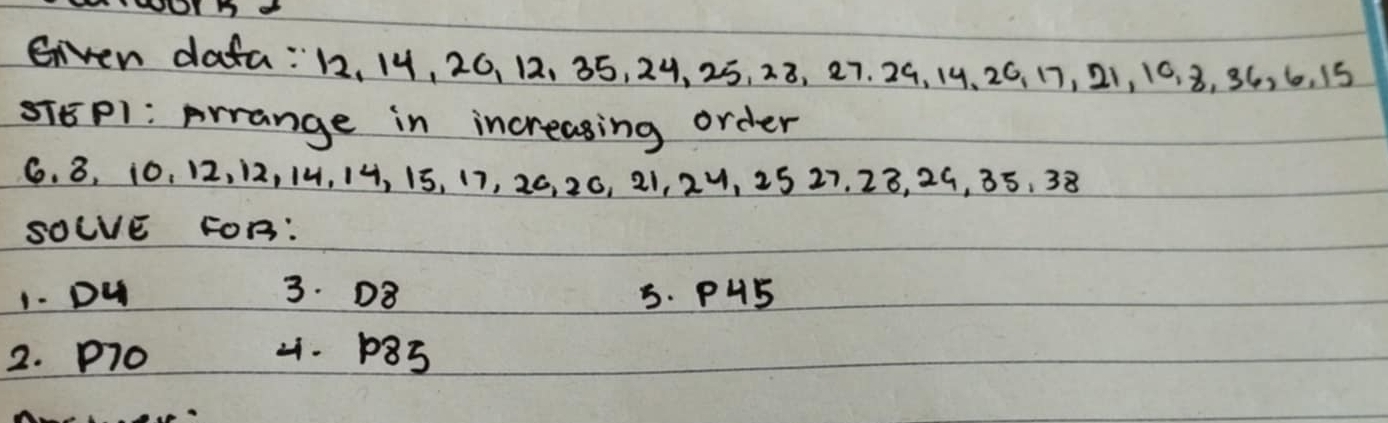 Given data: 12, 14, 20, 12, 35, 24, 25, 28, 27. 29, 14, 20, 17, 21, 10, 8, 36, 6, 15
STEP1: Arrange in increasing order
6, 8, 10, 12, 12, 14, 14, 15, 17, 20, 20, 21, 24, 25 27. 28, 29, 35, 38
SOLVE FOR:
1. D4 3. D8 5. P45
2. P70 4. P85